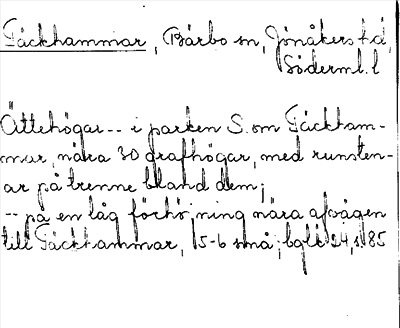 Täckhammar, Bärbo sn, Jönåkers hd,
Söderml. l
Ättehögar -- i parken S. om Täckham-
mar, nära 30 grafhögar, med runsten-
ar på trenne bland dem;
-- på en låg förhöjning nära afvägen
till Täckhammar, 5-6 små; bgl. 24, s. 85